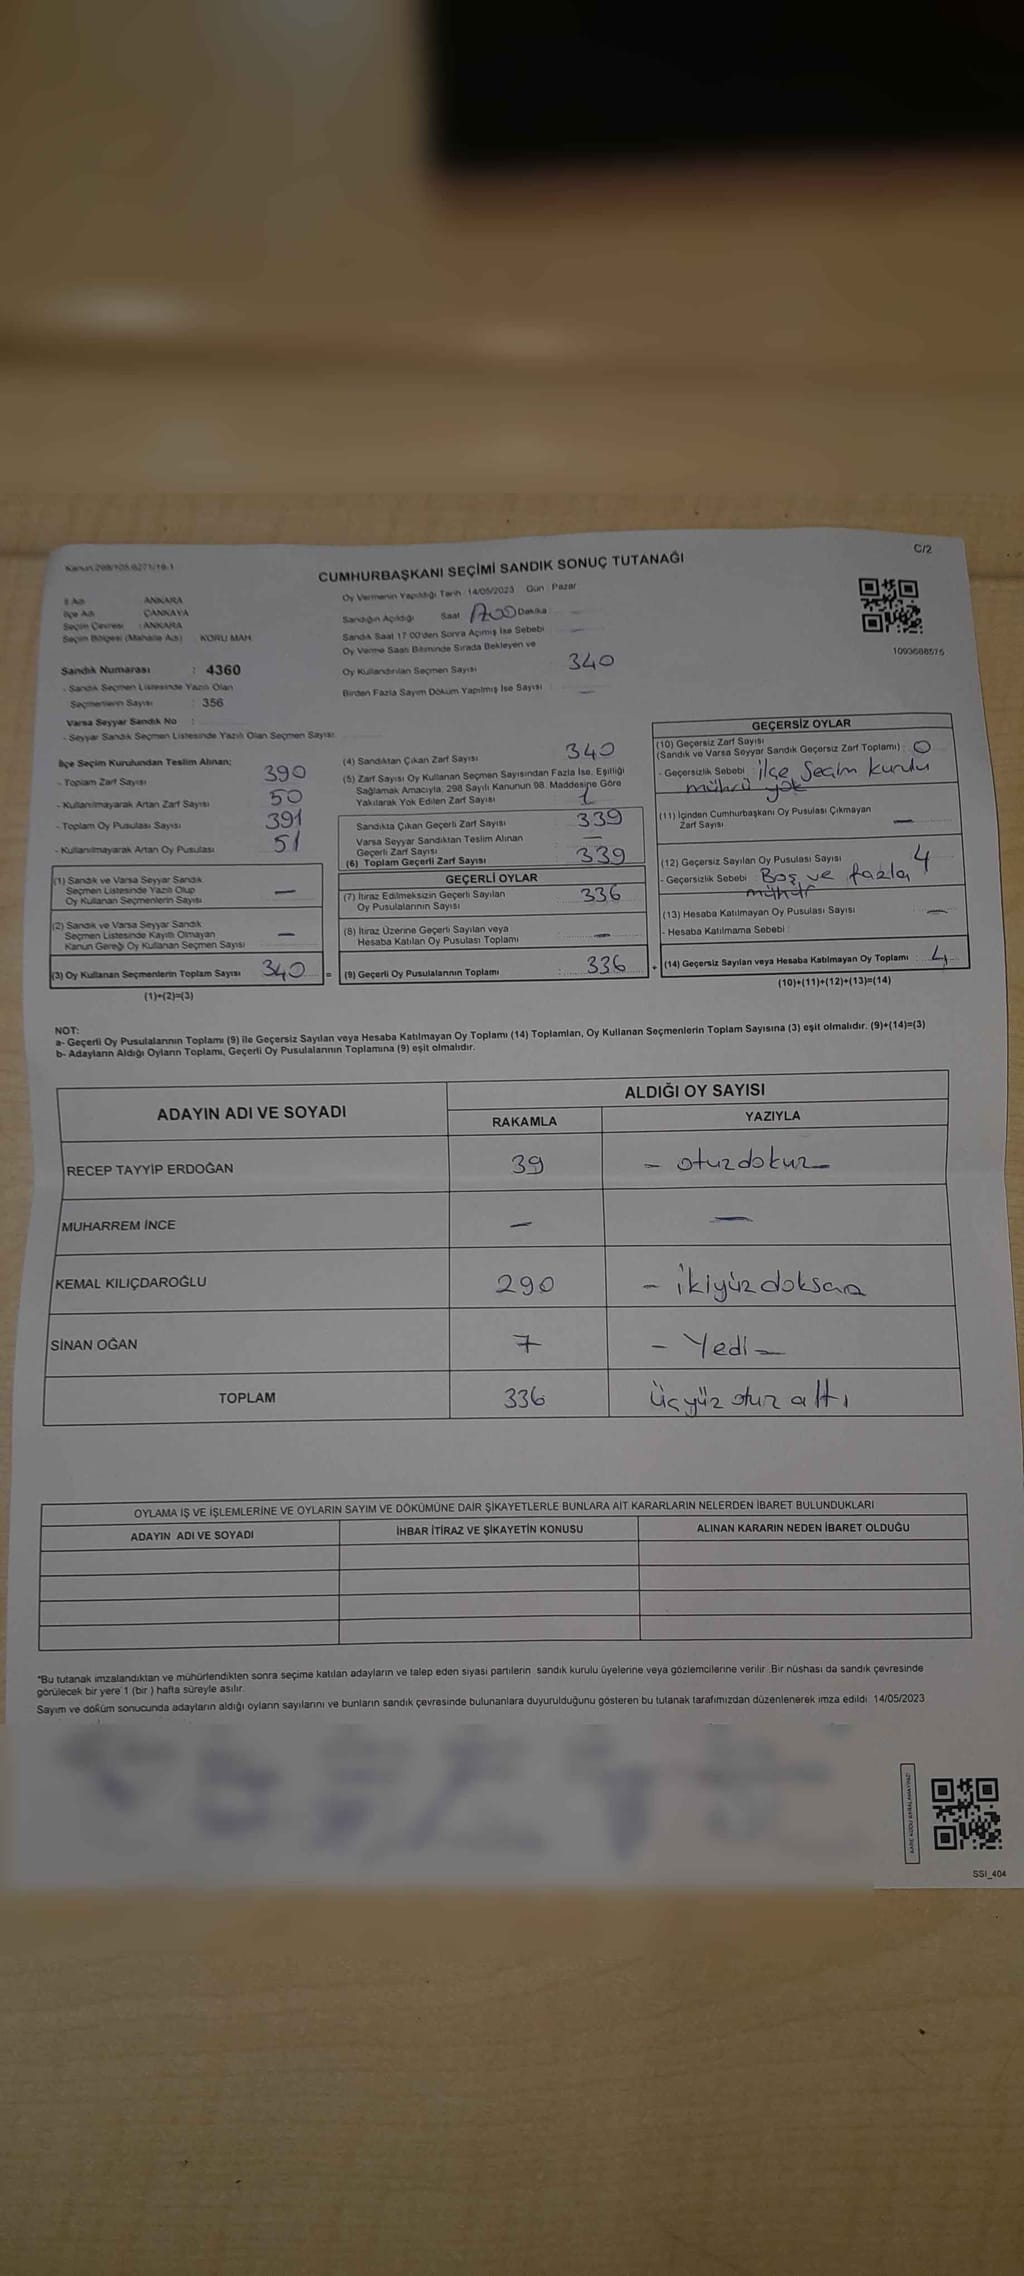 C/2
Kanun 298/105-6271/19-1
CUMHURBAŞKANI SEÇİMİ SANDIK SONUÇ TUTANAĞI
İl Adı ANKARA
İlçe Adı ÇANKAYA
Seçim Çevresi : ANKARA
Seçim Bölgesi (Mahalle Adı) KORU MAH
Sandık Numarası : 4360
- Sandık Seçmen Listesinde Yazılı Olan
Seçmenlerin Sayısı 356
Varsa Seyyar Sandık No :
- Seyyar Sandık Seçmen Listesinde Yazılı Olan Seçmen Sayısı:
Oy Vermenin Yapıldığı Tarih : 14/05/2023 Gün : Pazar
Sandığın Açıldığı Saat Dakika
Sandık Saat 17:00'den Sonra Açılmış İse Sebebi
Oy Verme Saati Bitiminde Sırada Bekleyen ve
Oy Kullandırılan Seçmen Sayısı 340
Birden Fazla Sayım Döküm Yapılmış İse Sayısı : —
1093688575
İlçe Seçim Kurulundan Teslim Alınan;
- Toplam Zarf Sayısı 390
- Kullanılmayarak Artan Zarf Sayısı 50
- Toplam Oy Pusulası Sayısı 391
- Kullanılmayarak Artan Oy Pusulası 51
(1) Sandık ve Varsa Seyyar Sandık
Seçmen Listesinde Yazılı Olup
Oy Kullanan Seçmenlerin Sayısı —
(2) Sandık ve Varsa Seyyar Sandık
Seçmen Listesinde Kayıtlı Olmayan
Kanun Gereği Oy Kullanan Seçmen Sayısı —
(3) Oy Kullanan Seçmenlerin Toplam Sayısı 340 =
(1)+(2)=(3)
(4) Sandıktan Çıkan Zarf Sayısı 340
(5) Zarf Sayısı Oy Kullanan Seçmen Sayısından Fazla İse, Eşitliği
Sağlamak Amacıyla, 298 Sayılı Kanunun 98. Maddesine Göre
Yakılarak Yok Edilen Zarf Sayısı 1
Sandıkta Çıkan Geçerli Zarf Sayısı 339
Varsa Seyyar Sandıktan Teslim Alınan
Geçerli Zarf Sayısı —
(6) Toplam Geçerli Zarf Sayısı 339
GEÇERLİ OYLAR
(7) İtiraz Edilmeksizin Geçerli Sayılan
Oy Pusulalarının Sayısı 336
(8) İtiraz Üzerine Geçerli Sayılan veya
Hesaba Katılan Oy Pusulası Toplamı —
(9) Geçerli Oy Pusulalarının Toplamı : 336 +
GEÇERSİZ OYLAR
(10) Geçersiz Zarf Sayısı
(Sandık ve Varsa Seyyar Sandık Geçersiz Zarf Toplamı) : 0
- Geçersizlik Sebebi : ilçe Seçim kurulu
mührü yok
(11) İçinden Cumhurbaşkanı Oy Pusulası Çıkmayan
Zarf Sayısı —
(12) Geçersiz Sayılan Oy Pusulası Sayısı 4
- Geçersizlik Sebebi Boş ve fazla
mühür
(13) Hesaba Katılmayan Oy Pusulası Sayısı —
- Hesaba Katılmama Sebebi :
(14) Geçersiz Sayılan veya Hesaba Katılmayan Oy Toplamı : 4
(10)+(11)+(12)+(13)=(14)
NOT:
a- Geçerli Oy Pusulalarının Toplamı (9) ile Geçersiz Sayılan veya Hesaba Katılmayan Oy Toplamı (14) Toplamları, Oy Kullanan Seçmenlerin Toplam Sayısına (3) eşit olmalıdır. (9)+(14)=(3)
b- Adayların Aldığı Oyların Toplamı, Geçerli Oy Pusulalarının Toplamına (9) eşit olmalıdır.
ADAYIN ADI VE SOYADI ALDIĞI OY SAYISI
RAKAMLA YAZIYLA
RECEP TAYYİP ERDOĞAN 39 – otuzdokuz –
MUHARREM İNCE — —
KEMAL KILIÇDAROĞLU 290 – ikiyüz doksan
SİNAN OĞAN 7 – Yedi –
TOPLAM 336 üçyüz otuz altı
OYLAMA İŞ VE İŞLEMLERİNE VE OYLARIN SAYIM VE DÖKÜMÜNE DAİR ŞİKAYETLERLE BUNLARA AİT KARARLARIN NELERDEN İBARET BULUNDUKLARI
ADAYIN ADI VE SOYADI İHBAR İTİRAZ VE ŞİKAYETİN KONUSU ALINAN KARARIN NEDEN İBARET OLDUĞU
"Bu tutanak imzalandıktan ve mühürlendikten sonra seçime katılan adayların ve talep eden siyasi partilerin sandık kurulu üyelerine veya gözlemcilerine verilir. Bir nüshası da sandık çevresinde
görülecek bir yere 1 (bir) hafta süreyle asılır.
Sayım ve döküm sonucunda adayların aldığı oyların sayılarını ve bunların sandık çevresinde bulunanlara duyurulduğunu gösteren bu tutanak tarafımızdan düzenlenerek imza edildi 14/05/2023
KARE KODU KARALAMAYINIZ!
SSI_404